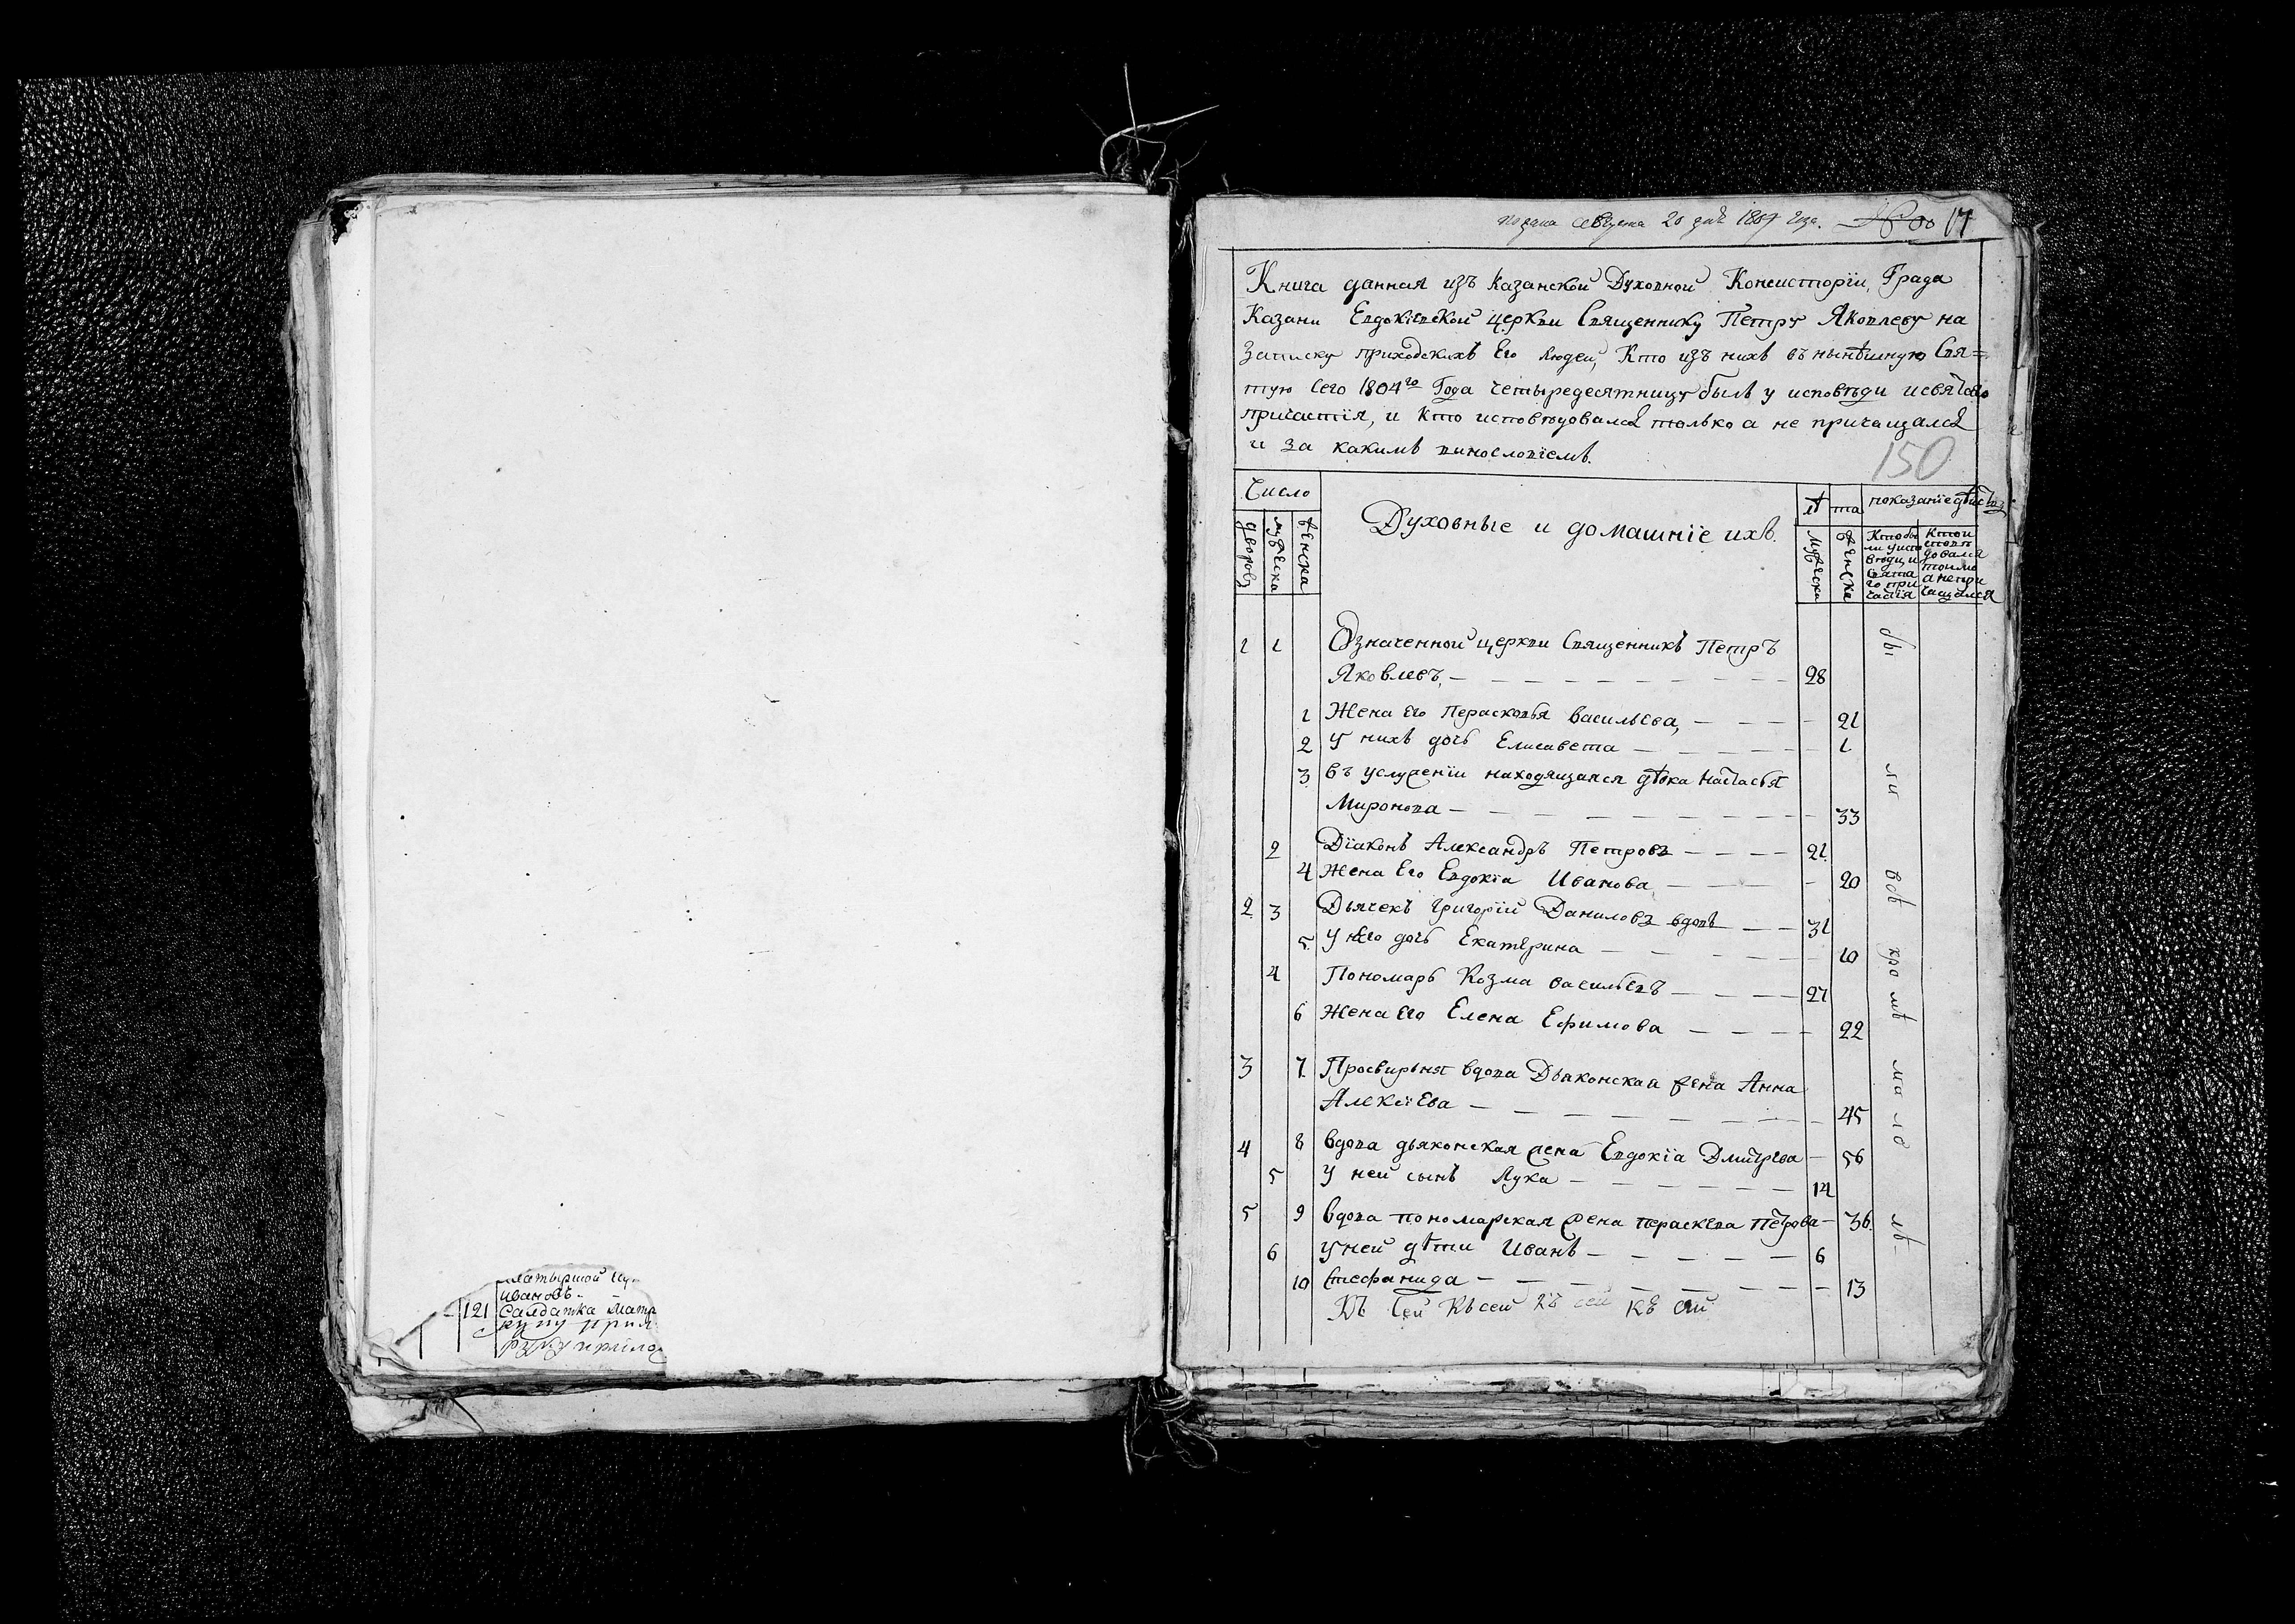 латырской
Ивановъ
121 Салдатка Матр
подана августа 20 дня 1804 года. 17
Книга данная изъ Казанской Духовной Консисторїи, Града
Казани Евдокїевской церкви Священнику Петру Яковлеву на
записку приходскихъ Его людей, Кто изъ нихъ въ нынѣшную Свя=
тую Сего 1804го Года четыредесятницу былъ у исповѣди и святаго
причастїя, и кто исповѣдовался только а не причащался
и за какимъ винословїемъ.
150
Число
дворовъ
мужеска
женска
Духовные и домашнїе ихъ.
лѣ та
мужеска
женска
показанїе дѣйства
Кто бы
ли у испо
вѣди и
свята
го при
частїя
Кто и
сповѣ
довался
толко
а непри
чащался
1 1 Означенной церкви Священникъ Петръ
Яковлевъ, — 28
1 Жена Его Перасковья Васильева, — 21
2 У нихъ дочь Елисавета — 1
3 въ услуженїи находящаяся дѣвка Настасья
Миронова — 33
2 Дїаконъ Александръ Петровъ — 21
4 Жена Его Евдокїа Иванова — 20
2 3 Дьячекъ Григорїй Даниловъ вдовъ — 31
5 У него дочь Екатерина — 10
4 Пономарь Козма Васильевъ — 27
6 Жена Его Елена Ефимова — 22
3 7 Просвирьня вдова Дьяконская жена Анна
Алексїева — 45
4 8 вдова дьяконская жена Евдокїа Дмитрева — 56
5 У ней сынъ Лука — 14
5 9 вдова пономарская жена Параскева Петрова — 36
6 У ней дѣти Иванъ — 6
10 Стефанида — 13
Къ Сей Къ сей Къ сей Къ сей
бы ли всѣ кро мѣ ма лѣ